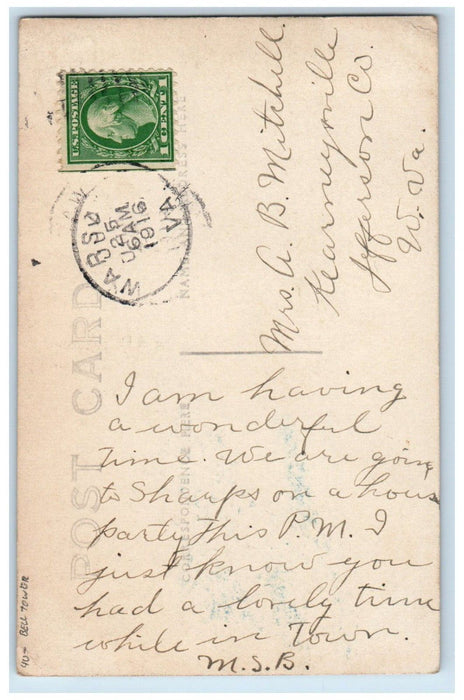 U.S. POSTAGE
1 CENT 1
AUG
25
6 AM
1916
VA
POST CARD
CORRESPONDENCE HERE
Mrs. A. B. Mitchell
Kearneysville
Jefferson Co.
W. Va.
I am having
a wonderful
time. We are going
to Sharps on a house
party this P.M. I
just know you
had a lovely time
while in Town.
M.S.B.
40- BELL TOWER